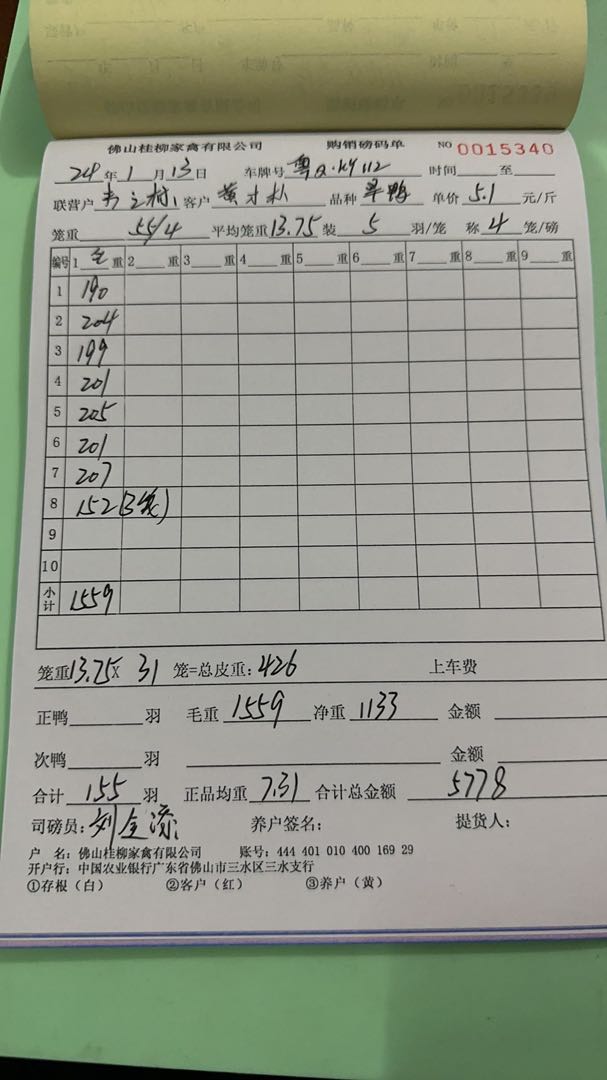 佛山桂柳家禽有限公司 购销磅码单 NO 0015340
24年1月13日 车牌号 粤Q·KY112 时间 至
联营户 客户 黄才朴 品种 旱鸭 单价 5.1 元/斤
笼重 55/4 平均笼重 13.75 装 5 羽/笼 称 4 笼/磅
编号 1 毛 重 2 重 3 重 4 重 5 重 6 重 7 重 8 重 9 重
1 190
2 204
3 199
4 201
5 205
6 201
7 207
8 152(3笼)
9
10
小计 1559
笼重13.75X 31 笼=总皮重:426 上车费
正鸭 羽 毛重 1559 净重 1133 金额
次鸭 羽 金额
合计 155 羽 正品均重 7.31 合计总金额 5778
司磅员: 养户签名: 提货人:
户 名: 佛山桂柳家禽有限公司 账号: 444 401 010 400 169 29
开户行: 中国农业银行广东省佛山市三水区三水支行
①存根(白) ②客户(红) ③养户(黄)